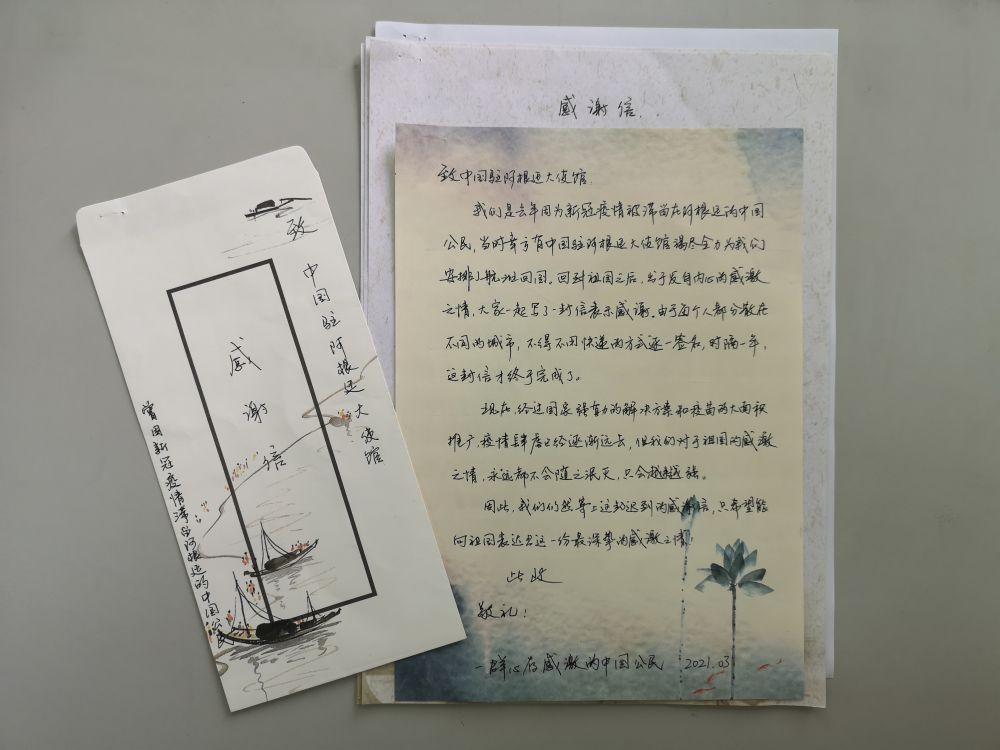 致
中国驻阿根廷大使馆
感谢信
曾因新冠疫情滞留阿根廷的中国公民
感谢信
致中国驻阿根廷大使馆
我们是去年因为新冠疫情被滞留在阿根廷的中国
公民,当时幸亏有中国驻阿根廷大使馆竭尽全力为我们
安排了航班回国。回到祖国之后,出于发自内心的感激
之情,大家一起写了一封信表示感谢。由于每个人都分散在
不同的城市,不得不用快递的方式逐一签名,时隔一年,
这封信才终于完成了。
现在,经过国家强有力的解决方案和疫苗的大面积
推广,疫情肆虐已经逐渐远去,但我们对于祖国的感激
之情,永远都不会随之泯灭,只会越来越强。
因此,我们仍然寄上这封迟到的感谢信,只希望能
向祖国表达出这一份最深挚的感激之情!
此致
敬礼!
一群心存感激的中国公民 2021.03